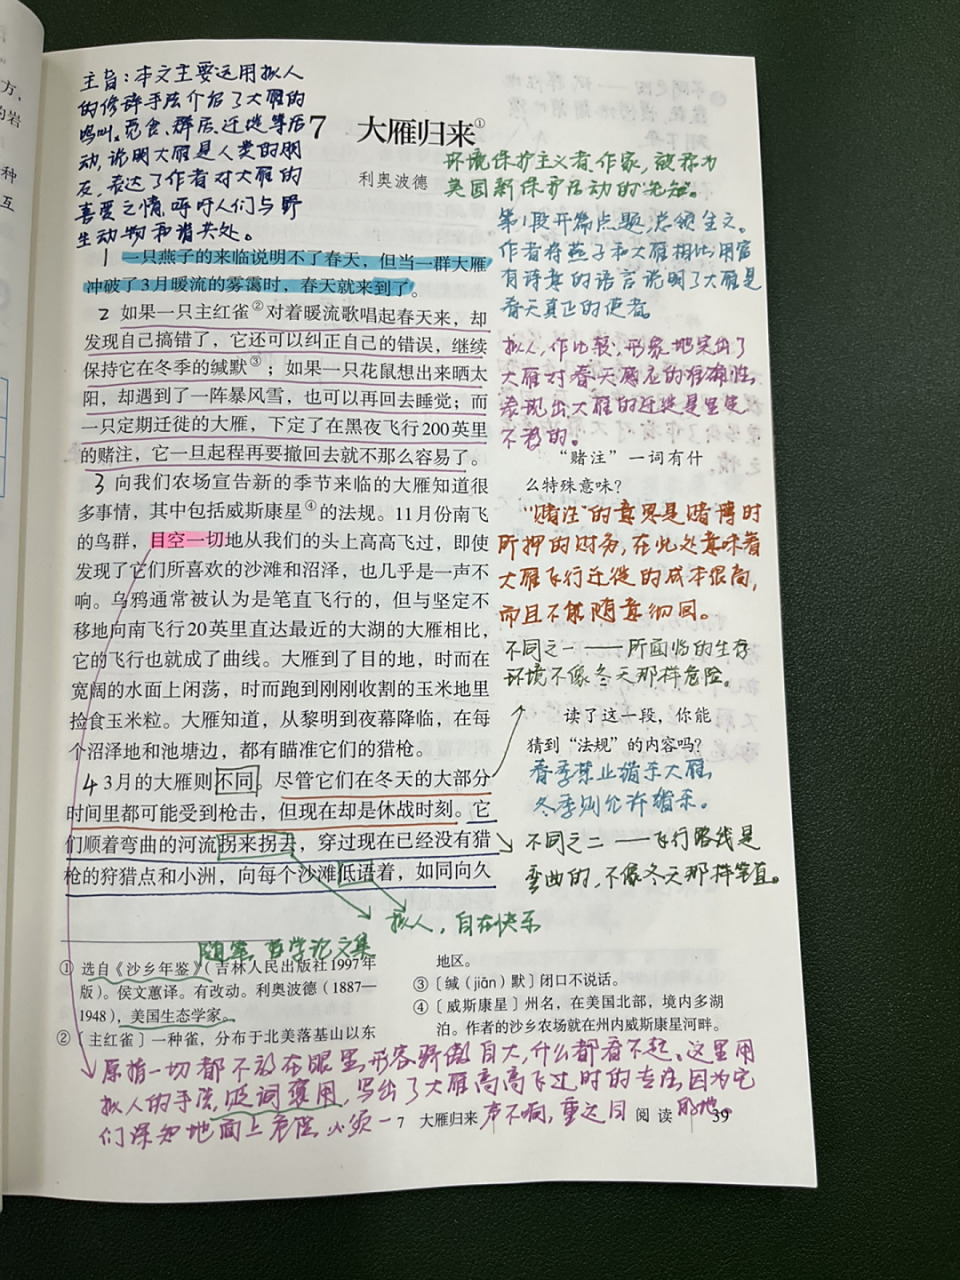 方，
的岩
种
互
主旨：本文主要运用拟人
的修辞手法介绍了大雁的
鸣叫、觅食、群居、迁徙等活
动，说明大雁是人类的朋
友，表达了作者对大雁的
喜爱之情，呼吁人们与野
生动物和谐共处。
7 大雁归来①
利奥波德
环境保护主义者，作家，被称为
美国新保护活动的"先知"。
第1段开篇点题，总领全文。
作者将燕子和大雁相比，用富
有诗意的语言说明了大雁是
春天真正的使者。
1 一只燕子的来临说明不了春天，但当一群大雁
冲破了3月暖流的雾霭时，春天就来到了。
2 如果一只主红雀②对着暖流歌唱起春天来，却
发现自己搞错了，它还可以纠正自己的错误，继续
保持它在冬季的缄默③；如果一只花鼠想出来晒太
阳，却遇到了一阵暴风雪，也可以再回去睡觉；而
一只定期迁徙的大雁，下定了在黑夜飞行200英里
的赌注，它一旦起程再要撤回去就不那么容易了。
拟人，作比较，形象地突出了
大雁对春天感应的准确性，
表现出大雁的迁徙是坚定
不移的。
"赌注"一词有什
么特殊意味？
"赌注"的意思是赌博时
所押的财务，在此处意味着
大雁飞行迁徙的成本很高，
而且不能随意彻回。
3 向我们农场宣告新的季节来临的大雁知道很
多事情，其中包括威斯康星④的法规。11月份南飞
的鸟群，目空一切地从我们的头上高高飞过，即使
发现了它们所喜欢的沙滩和沼泽，也几乎是一声不
响。乌鸦通常被认为是笔直飞行的，但与坚定不
移地向南飞行20英里直达最近的大湖的大雁相比，
它的飞行也就成了曲线。大雁到了目的地，时而在
宽阔的水面上闲荡，时而跑到刚刚收割的玉米地里
捡食玉米粒。大雁知道，从黎明到夜幕降临，在每
个沼泽地和池塘边，都有瞄准它们的猎枪。
不同之一——所面临的生存
环境不像冬天那样危险。
读了这一段，你能
猜到"法规"的内容吗？
春季禁止猎杀大雁，
冬季则允许猎杀。
4 3月的大雁则不同。尽管它们在冬天的大部分
时间里都可能受到枪击，但现在却是休战时刻。它
们顺着弯曲的河流拐来拐去，穿过现在已经没有猎
枪的狩猎点和小洲，向每个沙滩低语着，如同向久
不同之二——飞行路线是
弯曲的，不像冬天那样笔直。
拟人，自在快乐
随笔，哲学论文集
① 选自《沙乡年鉴》（吉林人民出版社1997年
版）。侯文蕙译。有改动。利奥波德（1887—
1948），美国生态学家。
② 〔主红雀〕一种雀，分布于北美落基山以东
地区。
③〔缄（jiān）默〕闭口不说话。
④〔威斯康星〕州名，在美国北部，境内多湖
泊。作者的沙乡农场就在州内威斯康星河畔。
原指一切都不放在眼里，形容骄傲自大，什么都看不起。这里用
拟人的手法，贬词褒用，写出了大雁高高飞过时的专注，因为它
们深知地面上危险，必须一声不响，直达目的地。
7 大雁归来 阅读 39